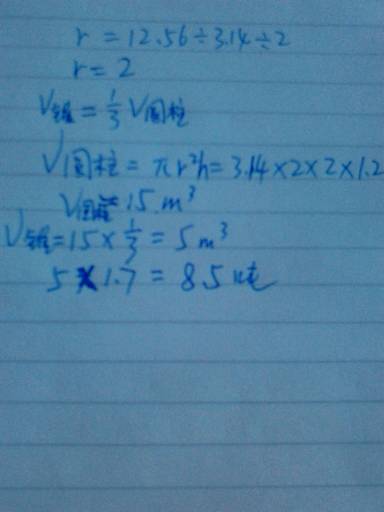 r = 12.56÷3.14÷2
r = 2
V锥 = 1/3 V圆柱
V圆柱 = πr²h = 3.14×2×2×1.2
V圆柱 = 15 m³
V锥 = 15 × 1/3 = 5 m³
5 × 1.7 = 8.5 吨